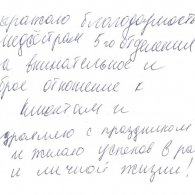 ыражаю благодарность
медсёстрам 5го отделения
а внимательное и
брое отношение к
клиентам и
здравляю с праздником
и желаю успехов в ра
и личной жизни,